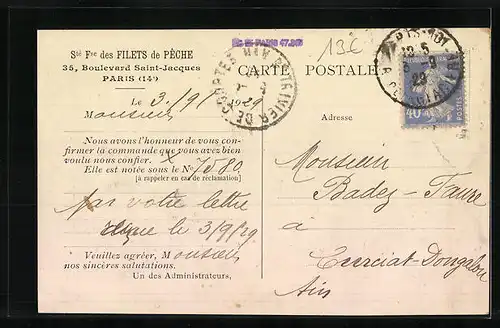 Sté Fse des FILETS de PÊCHE
35, Boulevard Saint-Jacques
PARIS (14e)
13€
CARTE POSTALE
Le 3/9/1929
Monsieur
Adresse
Nous avons l'honneur de vous con-
firmer la commande que vous avez bien
voulu nous confier.
Elle est notée sous le No 7580
[à rappeler en cas de réclamation]
par votre lettre
reçue le 3/9/29
Veuillez agréer, Monsieur
nos sincères salutations.
Un des Administrateurs,
40
Monsieur
Badez-Faure
à
Ain